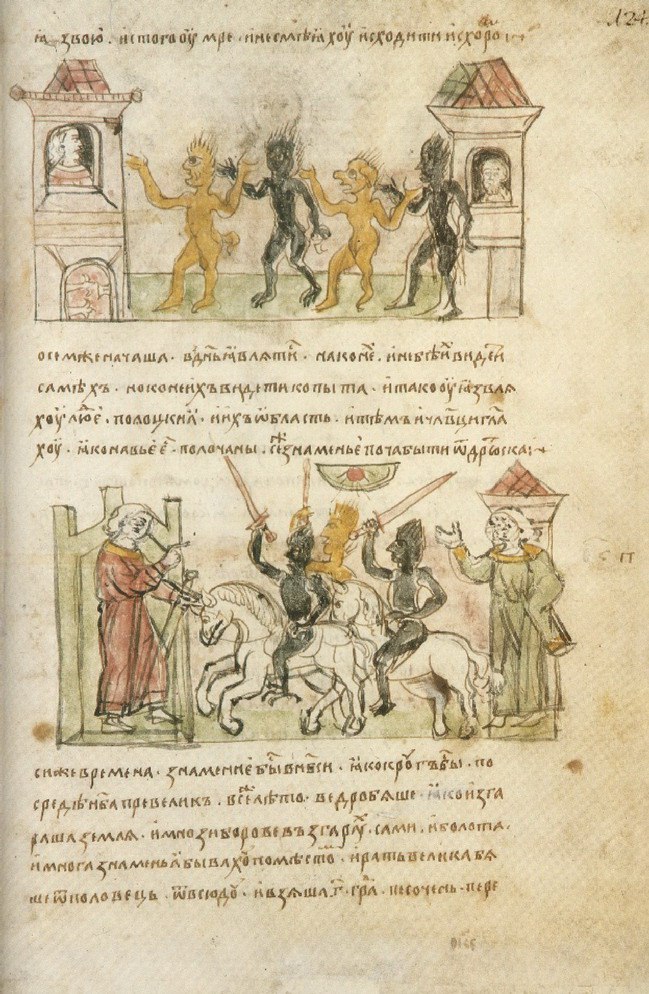 124
ꙗзвою. истогоѹмре. инесмѣꙗхѹ исходити исхоро
осемженачаша. вдн҃ь ꙗвлятиⷭ. наконеⷯ. инебѣ ивидѣти
самѣхъ. ноконеихъ видети копыта. итакоѹꙗзвля
хѹ люⷣе. полоцкиꙗ. иихъѡбласть. итѣмъ ичл҃вци гл҃а
хѹ. ꙗконавье полочаны. сеⷤ знаменье почабыти ѿдрюⷮска
сижевремена. знамениебыⷭ внб҃си. ꙗкокрѹгъбы. по
средѣнб҃а превеликъ. всеⷤлѣто. ведробяше. ꙗкоизга
рашаземля. имнозиборовевъзгараⷯ. сами. иболота.
имногазнаменьꙗ бывахѹ помѣстоⷨ. иратьвеликабя
шеѿполовець. ѿвсюдѹ. ивзяша.г҃. граⷣ. песочень. пере